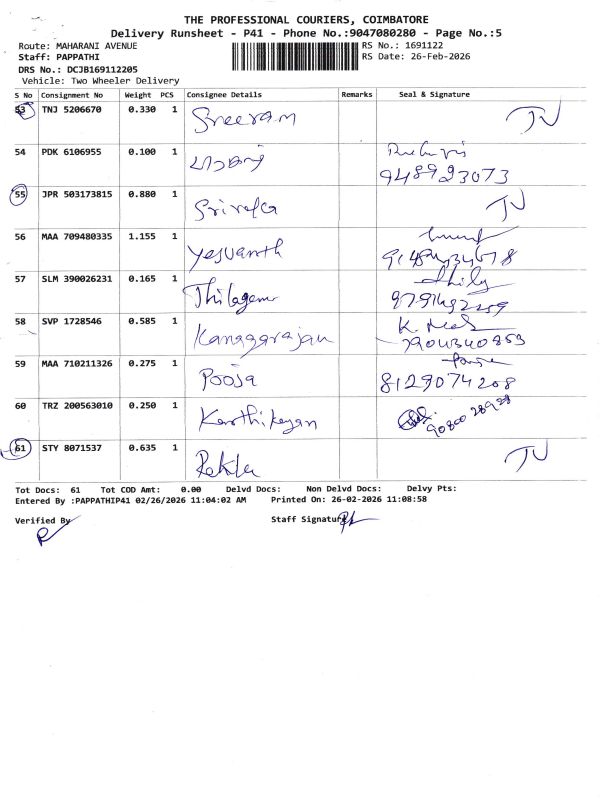 THE PROFESSIONAL COURIERS, COIMBATORE
Delivery Runsheet - P41 - Phone No.:9047080280 - Page No.:5
Route: MAHARANI AVENUE RS No.: 1691122
Staff: PAPPATHI RS Date: 26-Feb-2026
DRS No.: DCJB169112205
Vehicle: Two Wheeler Delivery
S No Consignment No Weight PCS Consignee Details Remarks Seal & Signature
53 TNJ 5206670 0.330 1 Sreeram
54 PDK 6106955 0.100 1
9489923073
55 JPR 503173815 0.880 1
56 MAA 709480335 1.155 1 Yesvanth
57 SLM 390026231 0.165 1 Thilagam
58 SVP 1728546 0.585 1 Kanagarajan
59 MAA 710211326 0.275 1 Pooja
8129074208
60 TRZ 200563010 0.250 1 Karthikeyan
9080028928
61 STY 8071537 0.635 1 Rekha
Tot Docs: 61 Tot COD Amt: 0.00 Delvd Docs: Non Delvd Docs: Delvy Pts:
Entered By :PAPPATHIP41 02/26/2026 11:04:02 AM Printed On: 26-02-2026 11:08:58
Verified By Staff Signature